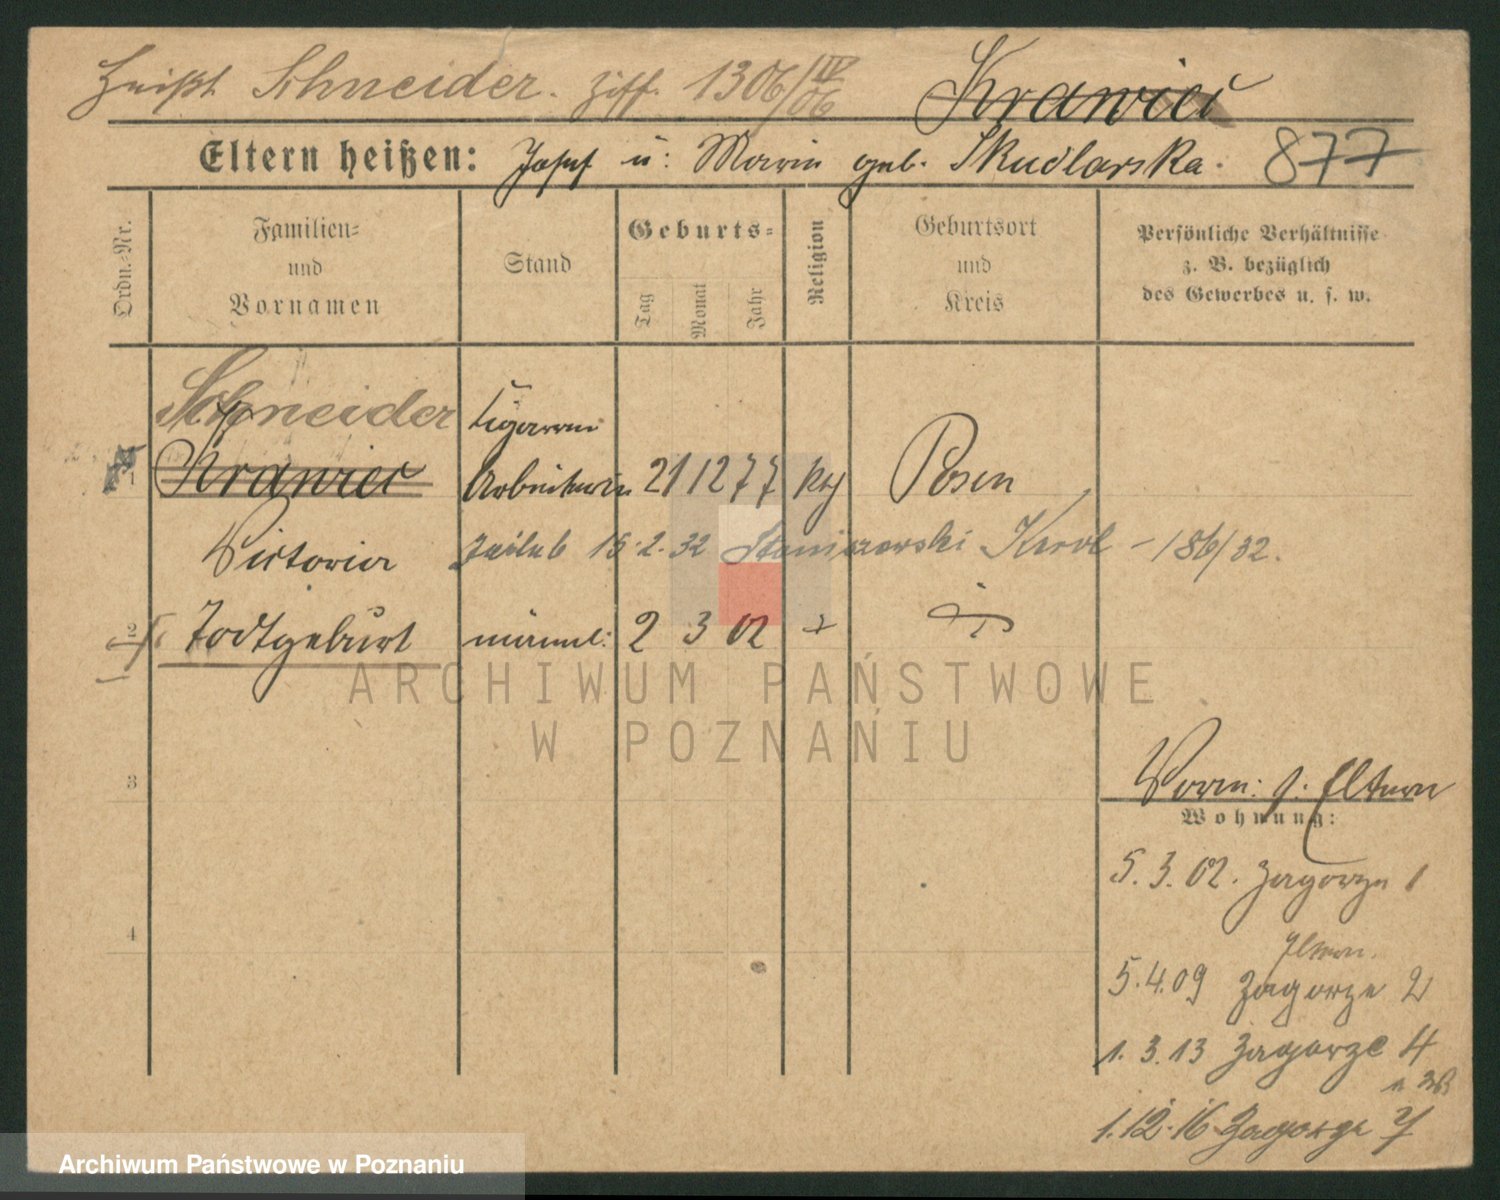 heißt Schneider. Ziff. 1306/IV 06 Krawiec
Eltern heißen: Josef u: Marie geb. Skudlarska. 877
Ordn.-Nr.
Familien- und Vornamen
Stand
Geburts-
Tag
Monat
Jahr
Religion
Geburtsort und Kreis
Persönliche Verhältnisse
z. B. bezüglich
des Gewerbes u. s. w.
Schneider Cigarren
1 Krawiec Arbeiterin 21 12 77 kth Posen
Victoria 15.2.32 Staniszewski Karol - 186/32.
2 Todtgeburt männl: 2 3 02
ARCHIWUM PAŃSTWOWE
W POZNANIU
3
Vorm: s. Eltern
Wohnung:
5.3.02. Zagorze 1
4
Eltern.
5.4.09 Zagorze 2
1.3.13 Zagorze 4
1.12.16 Zagorze 7
Archiwum Państwowe w Poznaniu